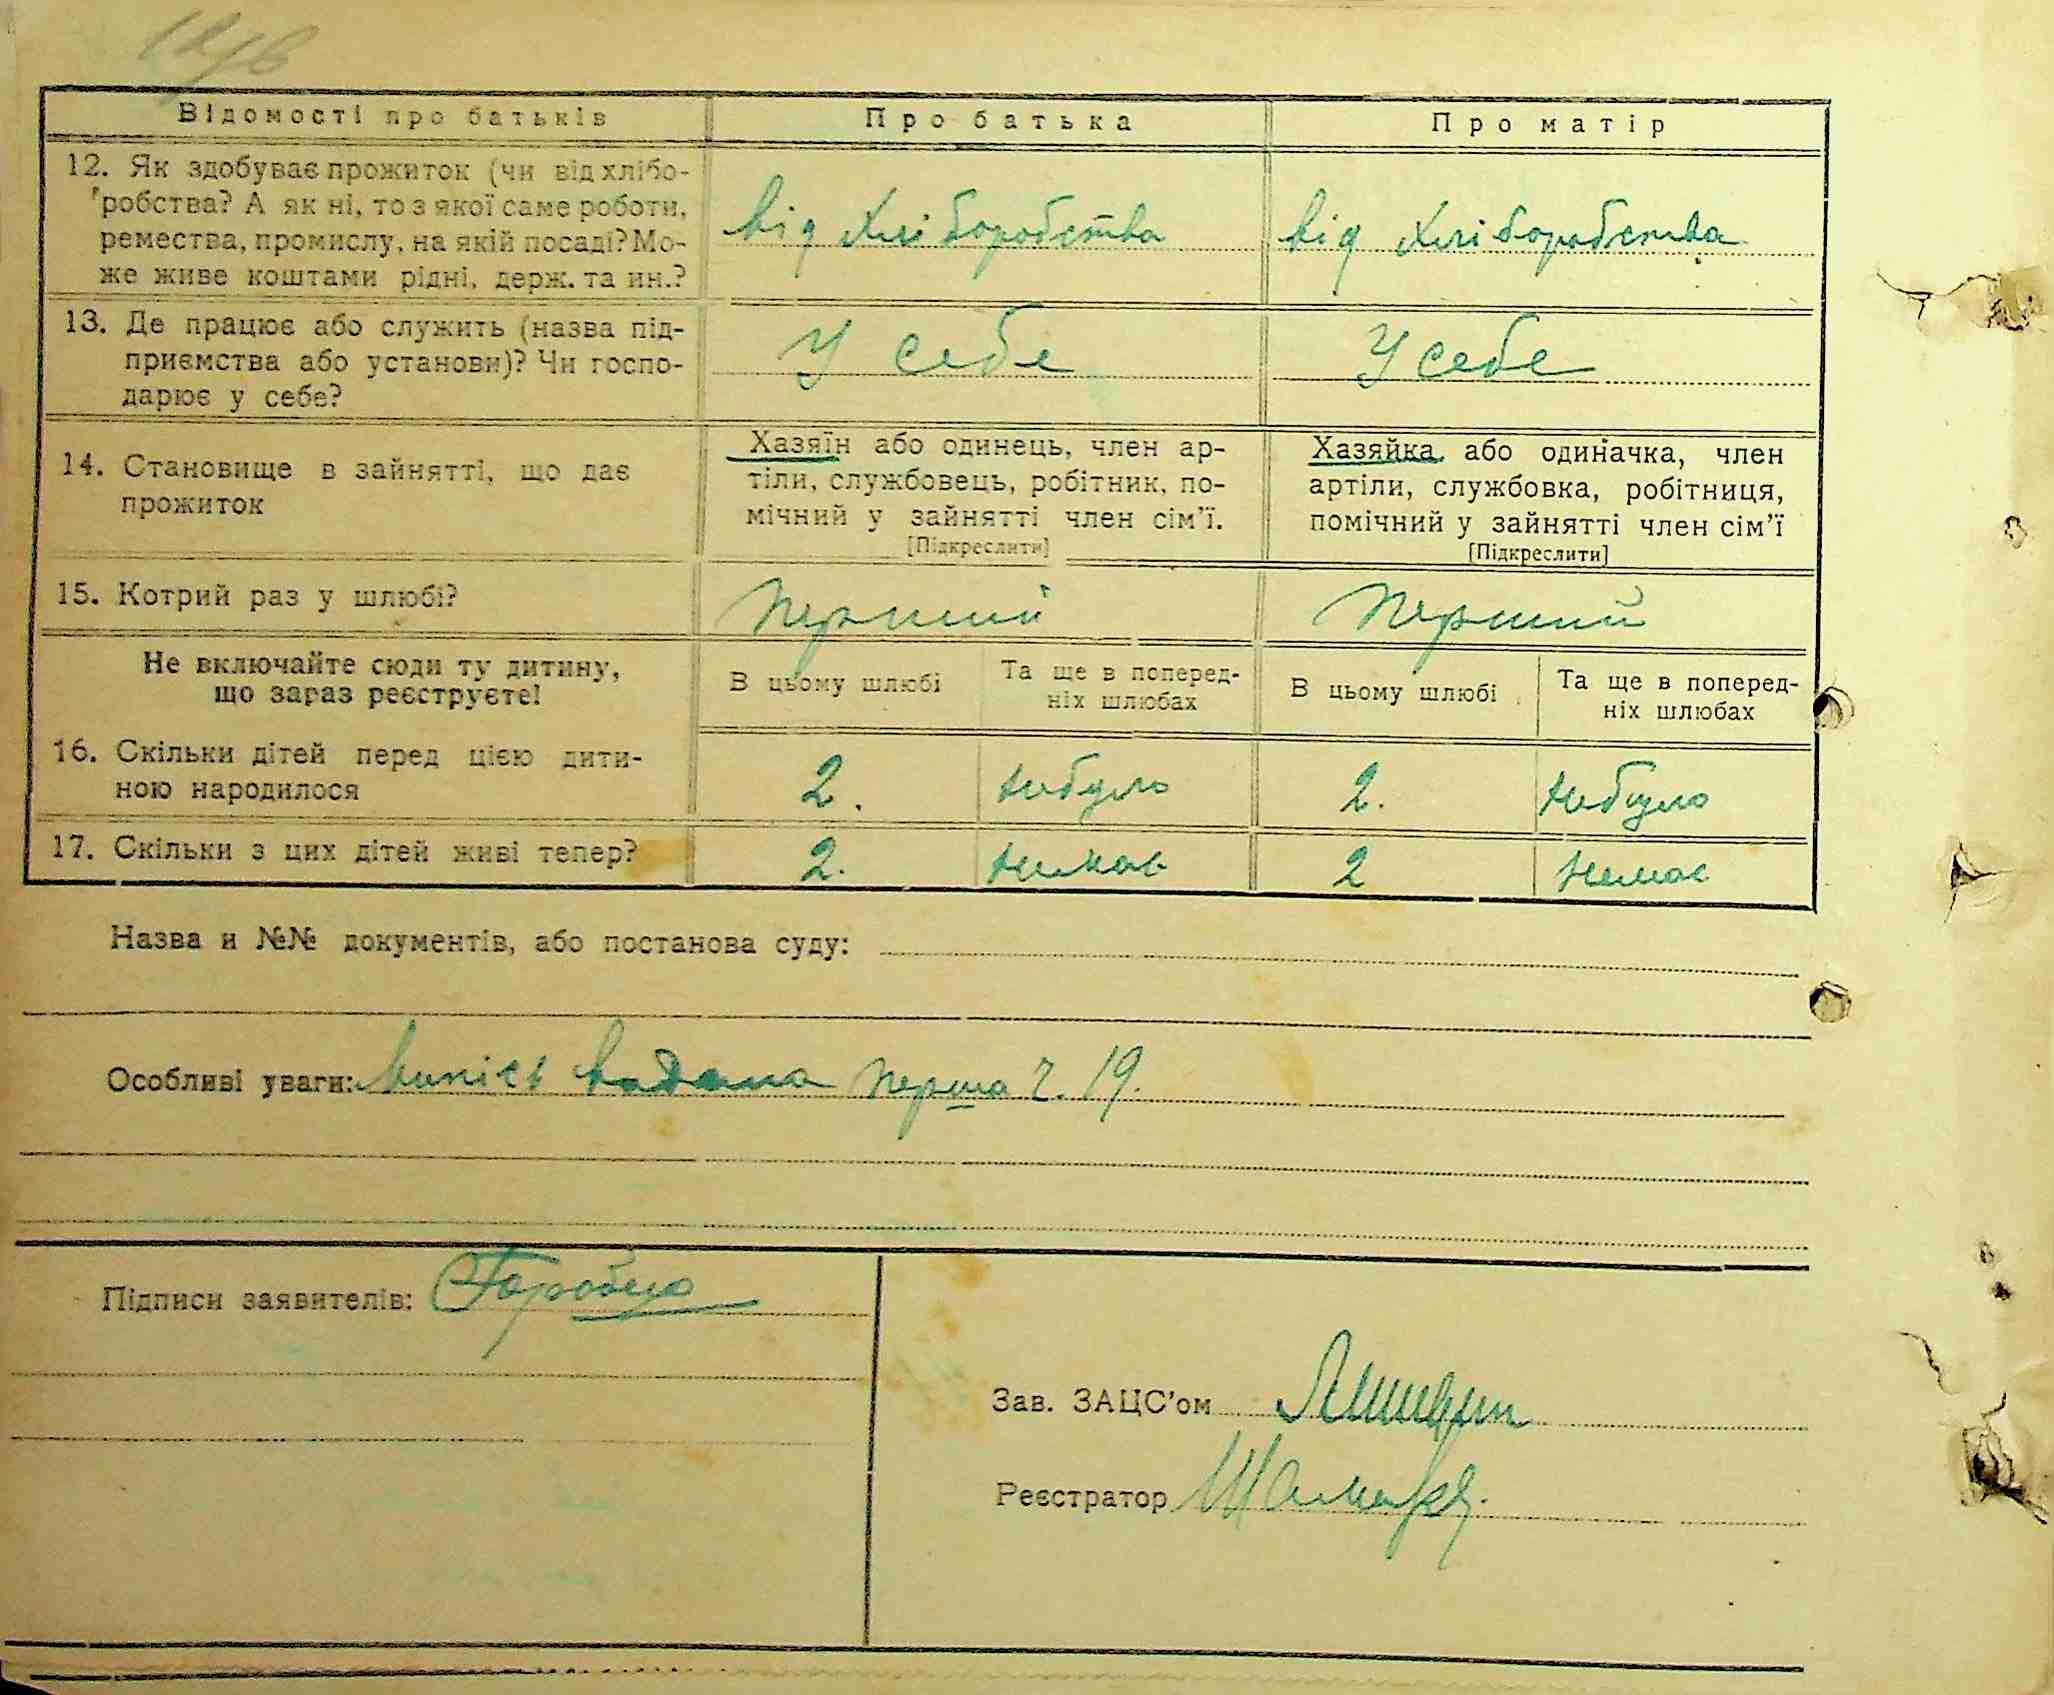 Відомості про батьків
Про батька
Про матір
12. Як здобуває прожиток (чи від хлібо-
робства? А як ні, то з якої саме роботи,
ремества, промислу, на якій посаді? Мо-
же живе коштами рідні, держ. та ин.?
від хліборобства
від хліборобства
13. Де працює або служить (назва під-
приємства або установи)? Чи госпо-
дарює у себе?
У себе
У себе
14. Становище в зайнятті, що дає
прожиток
Хазяїн або одинець, член ар-
тіли, службовець, робітник, по-
мічний у зайнятті член сім'ї.
[Підкреслити]
Хазяйка або одиначка, член
артіли, службовка, робітниця,
помічний у зайнятті член сім'ї
[Підкреслити]
15. Котрий раз у шлюбі?
Перший
Перший
Не включайте сюди ту дитину,
що зараз реєструєте!
В цьому шлюбі
Та ще в поперед-
ніх шлюбах
В цьому шлюбі
Та ще в поперед-
ніх шлюбах
16. Скільки дітей перед цією дити-
ною народилося
2.
небуло
2.
небуло
17. Скільки з цих дітей живі тепер?
2.
немає
2
немає
Назва и №№ документів, або постанова суду:
Особливі уваги: видана перша ч. 19.
Підписи заявителів:
Зав. ЗАЦС'ом
Реєстратор